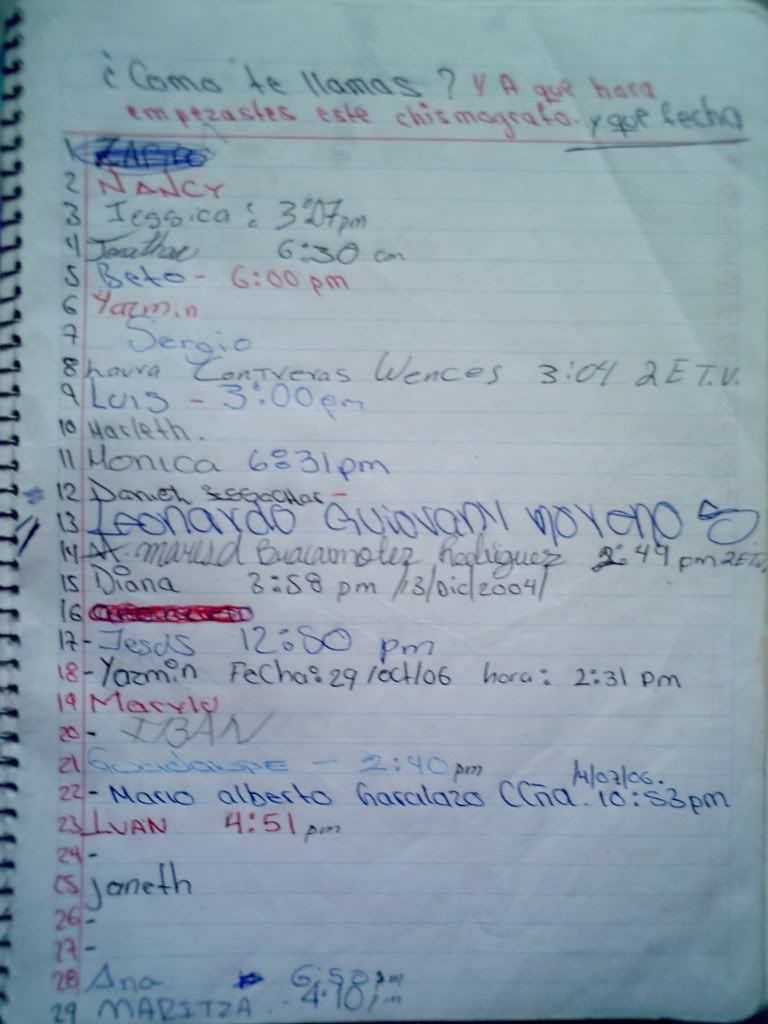 ¿Como te llamas? Y A que hora
empezastes este chismografo. y que fecha
1
2 NANCY
3 Jessica: 3:07pm
4 Jonathan 6:30 am
5 Beto - 6:00 pm
6 Yazmin
7 Sergio
8 Laura Contreras Wences 3:04 2E T.V.
9 Luis - 3:00pm
10 Marleth.
11 Monica 6:31pm
12 Daniel
13 Leonardo Guiovany moreno
14 Rodriguez 2:49 pm 2E T.V.
15 Diana 3:58 pm /13/Dic/2004/
16
17- Jesus 12:50 pm
18- Yazmin Fecha: 29/oct/06 hora: 2:31 pm
19 Maryly
20- IBAN
21 Guadalupe - 2:40 pm
14/07/06.
22- Mario alberto 10:53pm
23 IVAN 4:51 pm
24-
25 Janeth
26-
27-
28 Ana 6:58 pm
29 MARITZA - 4:10 pm